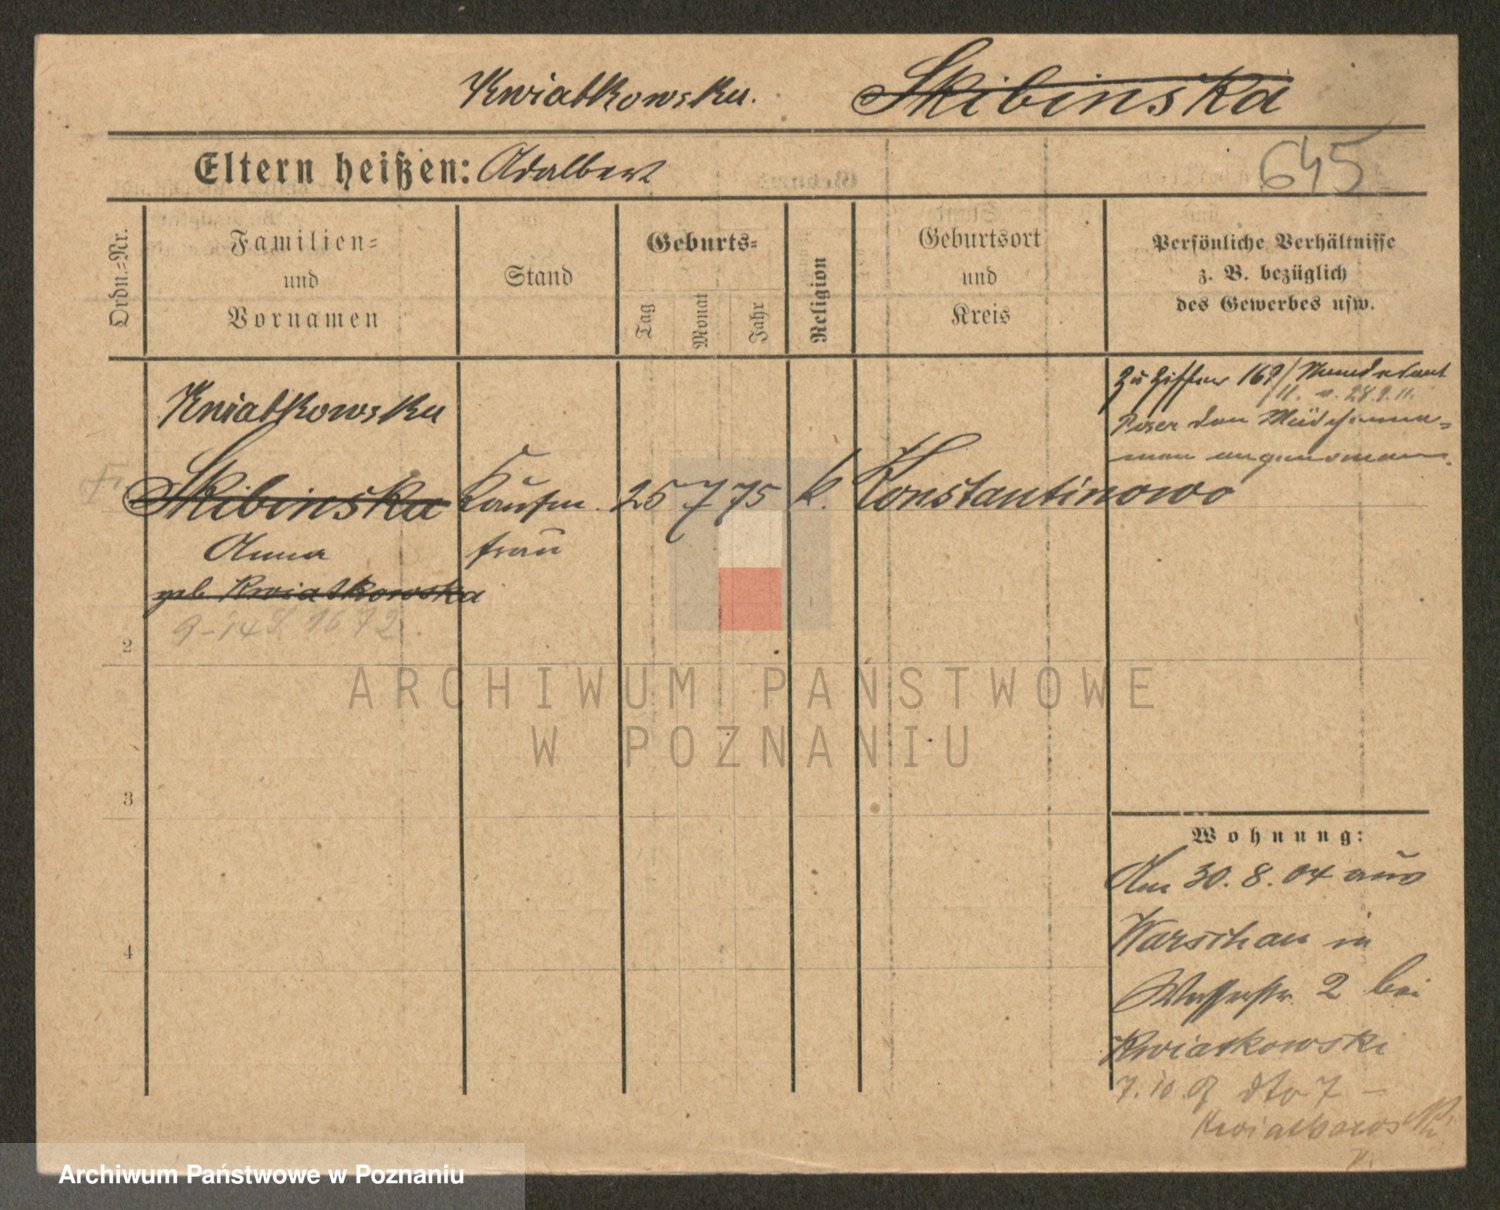 Kwiatkowska. Skibinska
Eltern heißen: Adalbert
645
Ordn.-Nr.
Familien-
und
Vornamen
Stand
Geburts-
Tag
Monat
Jahr
Religion
Geburtsort
und
Kreis
Persönliche Verhältnisse
z. B. bezüglich
des Gewerbes usw.
Kwiatkowska
Skibinska
Anna
geb Kwiatkowska
Kaufm.
frau
25 7 75
k.
Konstantinowo
Zu Ziffer
den Mädchenna-
men angenommen.
2
3
4
Wohnung:
Am 30. 8. 04 aus
Warschau in
Wasserstr. 2 bei
Kwiatkowski
7. 10. dto 7 –
Kwiatkowski
ARCHIWUM PAŃSTWOWE
W POZNANIU
Archiwum Państwowe w Poznaniu